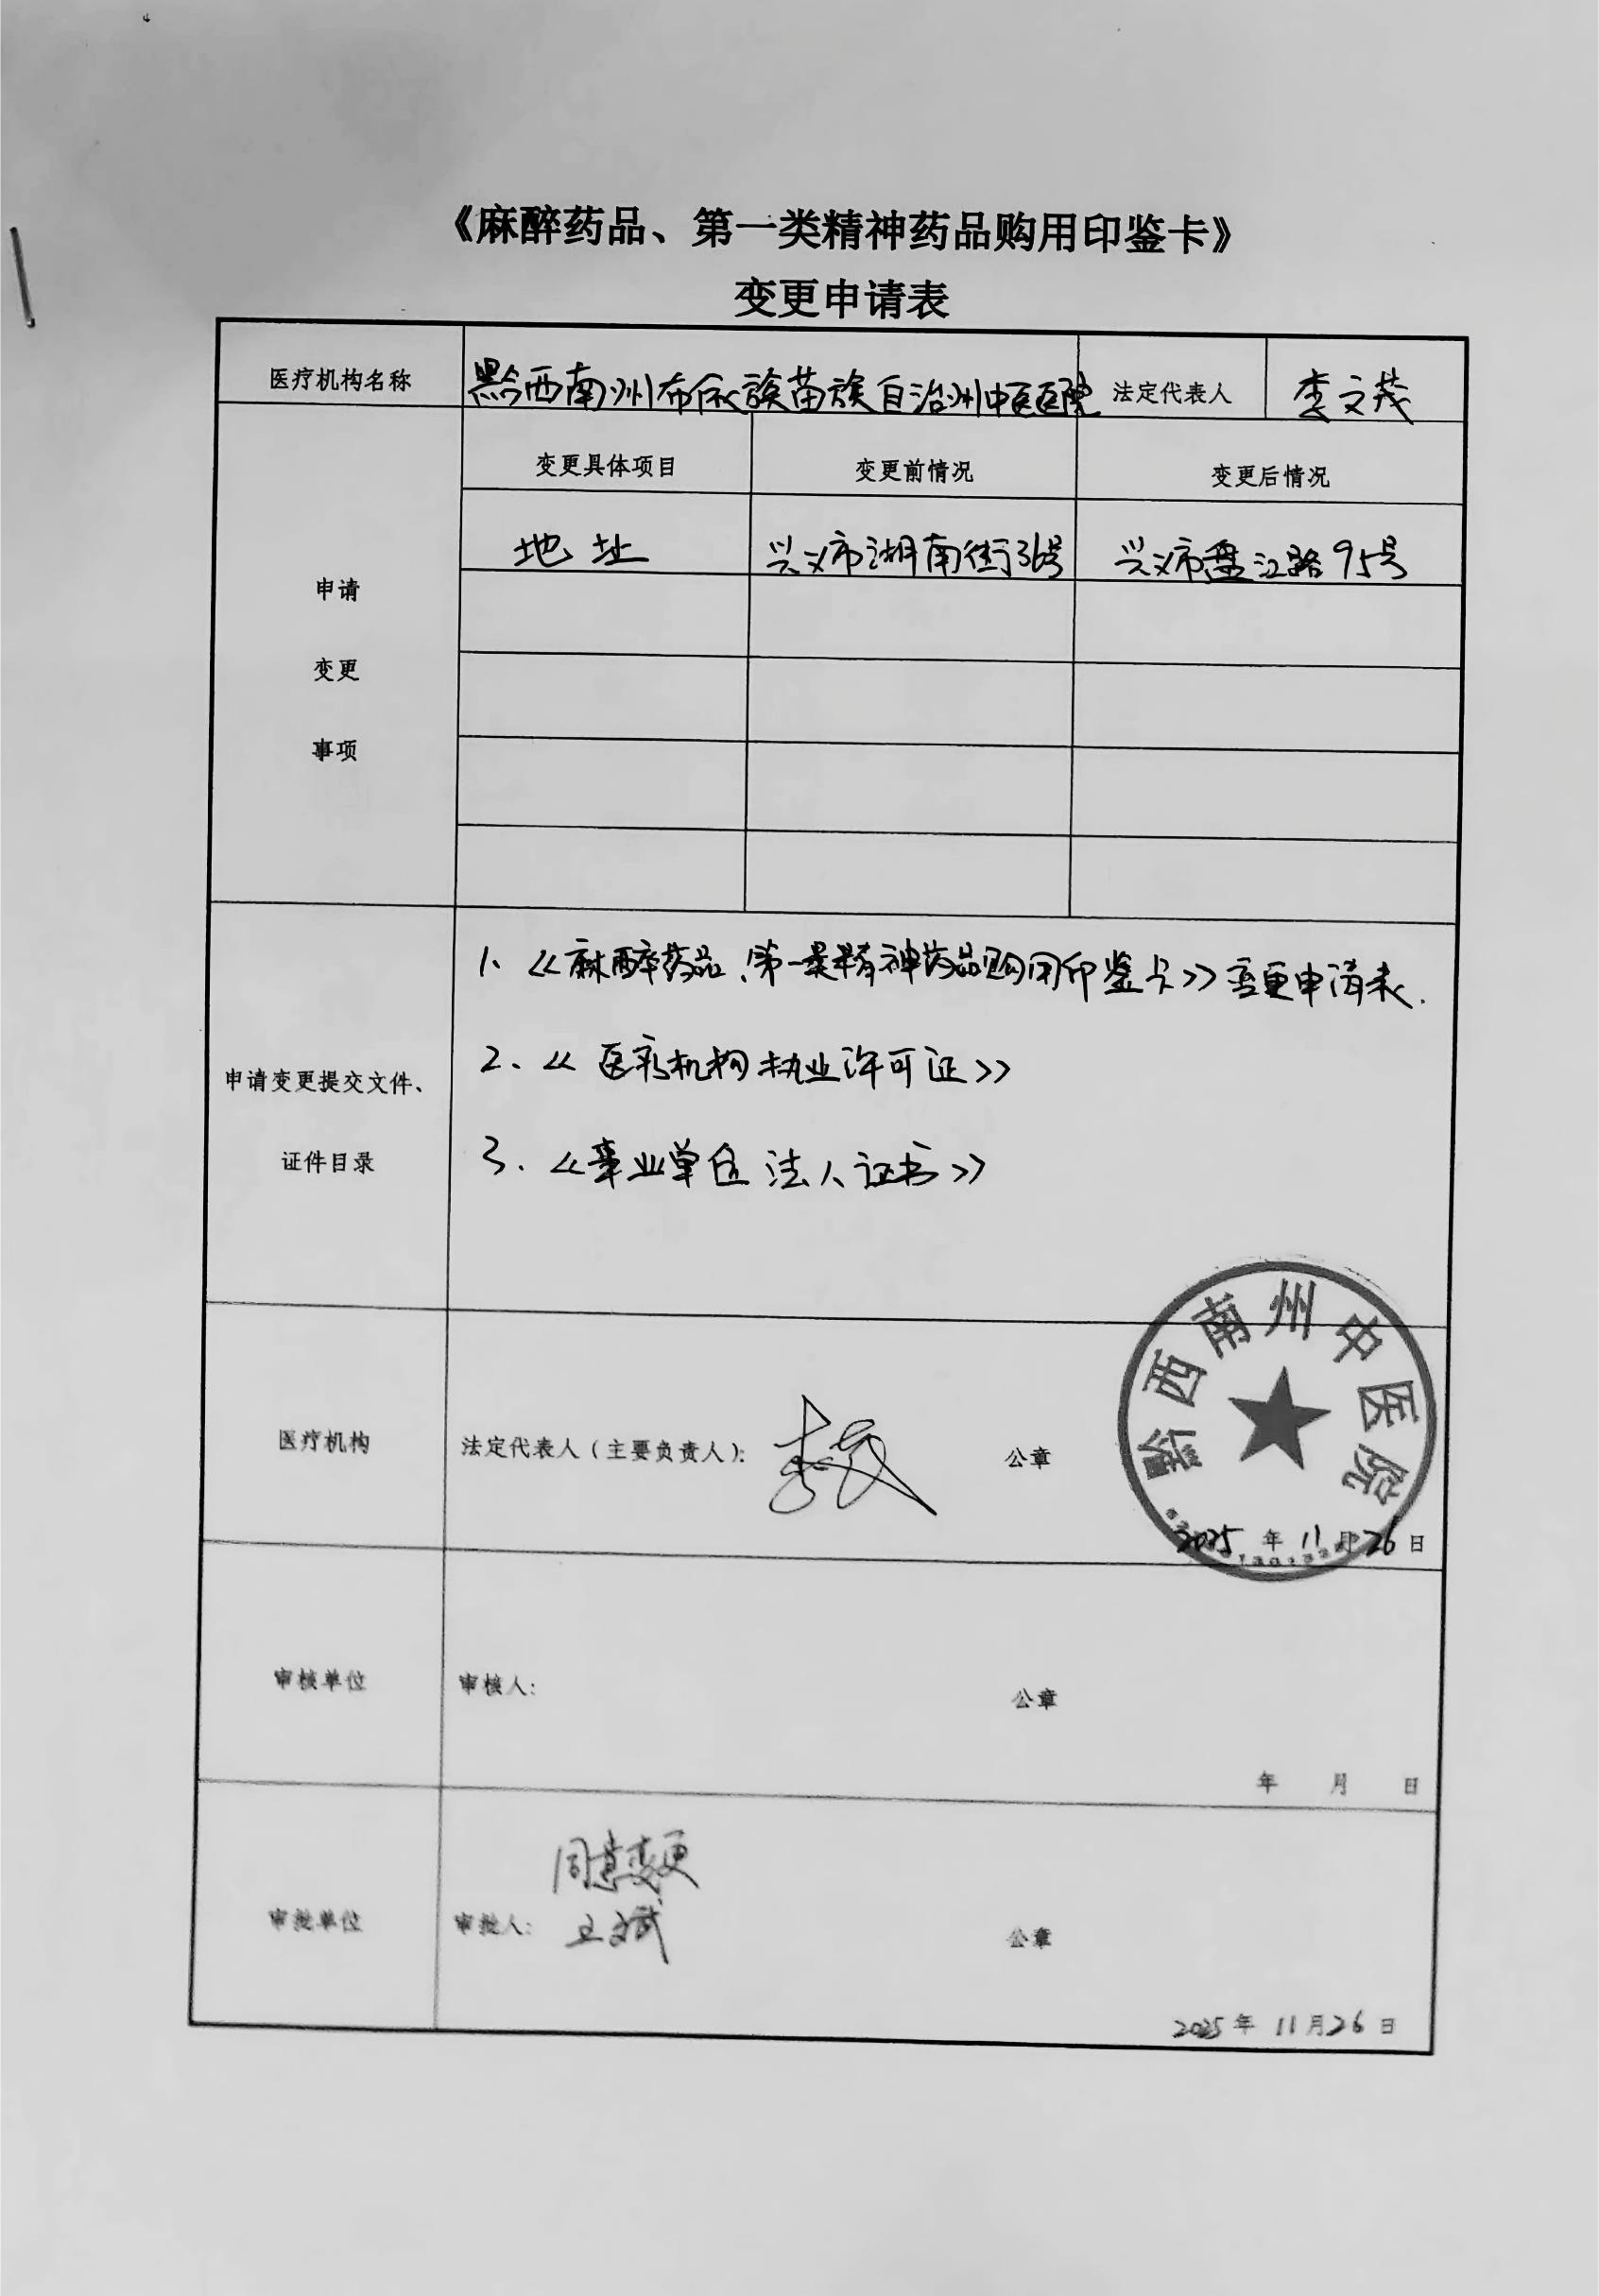 《麻醉药品、第一类精神药品购用印鉴卡》
变更申请表
医疗机构名称 黔西南州布依族苗族自治州中医医院 法定代表人 李文茂
申请变更事项
变更具体项目 变更前情况 变更后情况
地址 兴义市湖南街36号 兴义市盘江路95号
申请变更提交文件、
证件目录
1、《麻醉药品、第一类精神药品购用印鉴卡》变更申请表.
2、《医疗机构执业许可证》
3、《事业单位法人证书》
医疗机构 法定代表人（主要负责人）： 公章
黔西南州中医医院
2025年11月26日
审核单位 审核人： 公章
年 月 日
同意变更
审批单位 审批人： 王文斌 公章
2025年11月26日